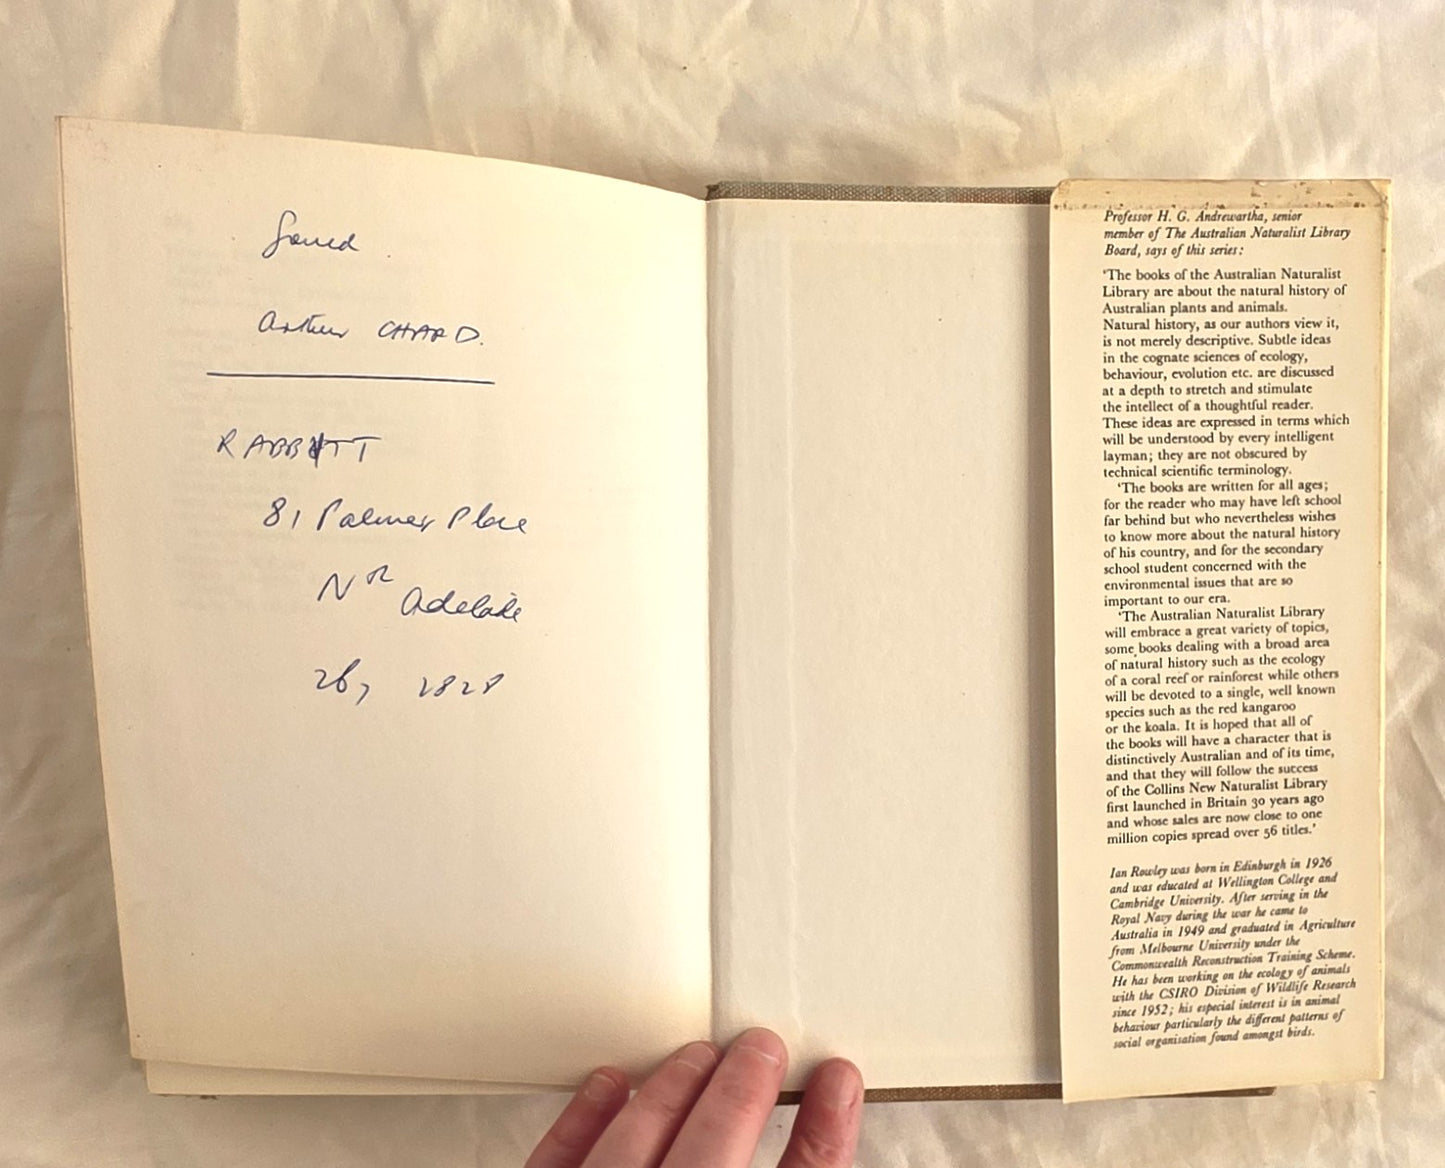 Arthur CHARD.
RABBITT
81 Palmer Place
Nth Adelaide
267 2828
Professor H. G. Andrewartha, senior
member of The Australian Naturalist Library
Board, says of this series:
'The books of the Australian Naturalist
Library are about the natural history of
Australian plants and animals.
Natural history, as our authors view it,
is not merely descriptive. Subtle ideas
in the cognate sciences of ecology,
behaviour, evolution etc. are discussed
at a depth to stretch and stimulate
the intellect of a thoughtful reader.
These ideas are expressed in terms which
will be understood by every intelligent
layman; they are not obscured by
technical scientific terminology.
'The books are written for all ages;
for the reader who may have left school
far behind but who nevertheless wishes
to know more about the natural history
of his country, and for the secondary
school student concerned with the
environmental issues that are so
important to our era.
'The Australian Naturalist Library
will embrace a great variety of topics,
some books dealing with a broad area
of natural history such as the ecology
of a coral reef or rainforest while others
will be devoted to a single, well known
species such as the red kangaroo
or the koala. It is hoped that all of
the books will have a character that is
distinctively Australian and of its time,
and that they will follow the success
of the Collins New Naturalist Library
first launched in Britain 30 years ago
and whose sales are now close to one
million copies spread over 56 titles.'
Ian Rowley was born in Edinburgh in 1926
and was educated at Wellington College and
Cambridge University. After serving in the
Royal Navy during the war he came to
Australia in 1949 and graduated in Agriculture
from Melbourne University under the
Commonwealth Reconstruction Training Scheme.
He has been working on the ecology of animals
with the CSIRO Division of Wildlife Research
since 1952; his especial interest is in animal
behaviour particularly the different patterns of
social organisation found amongst birds.